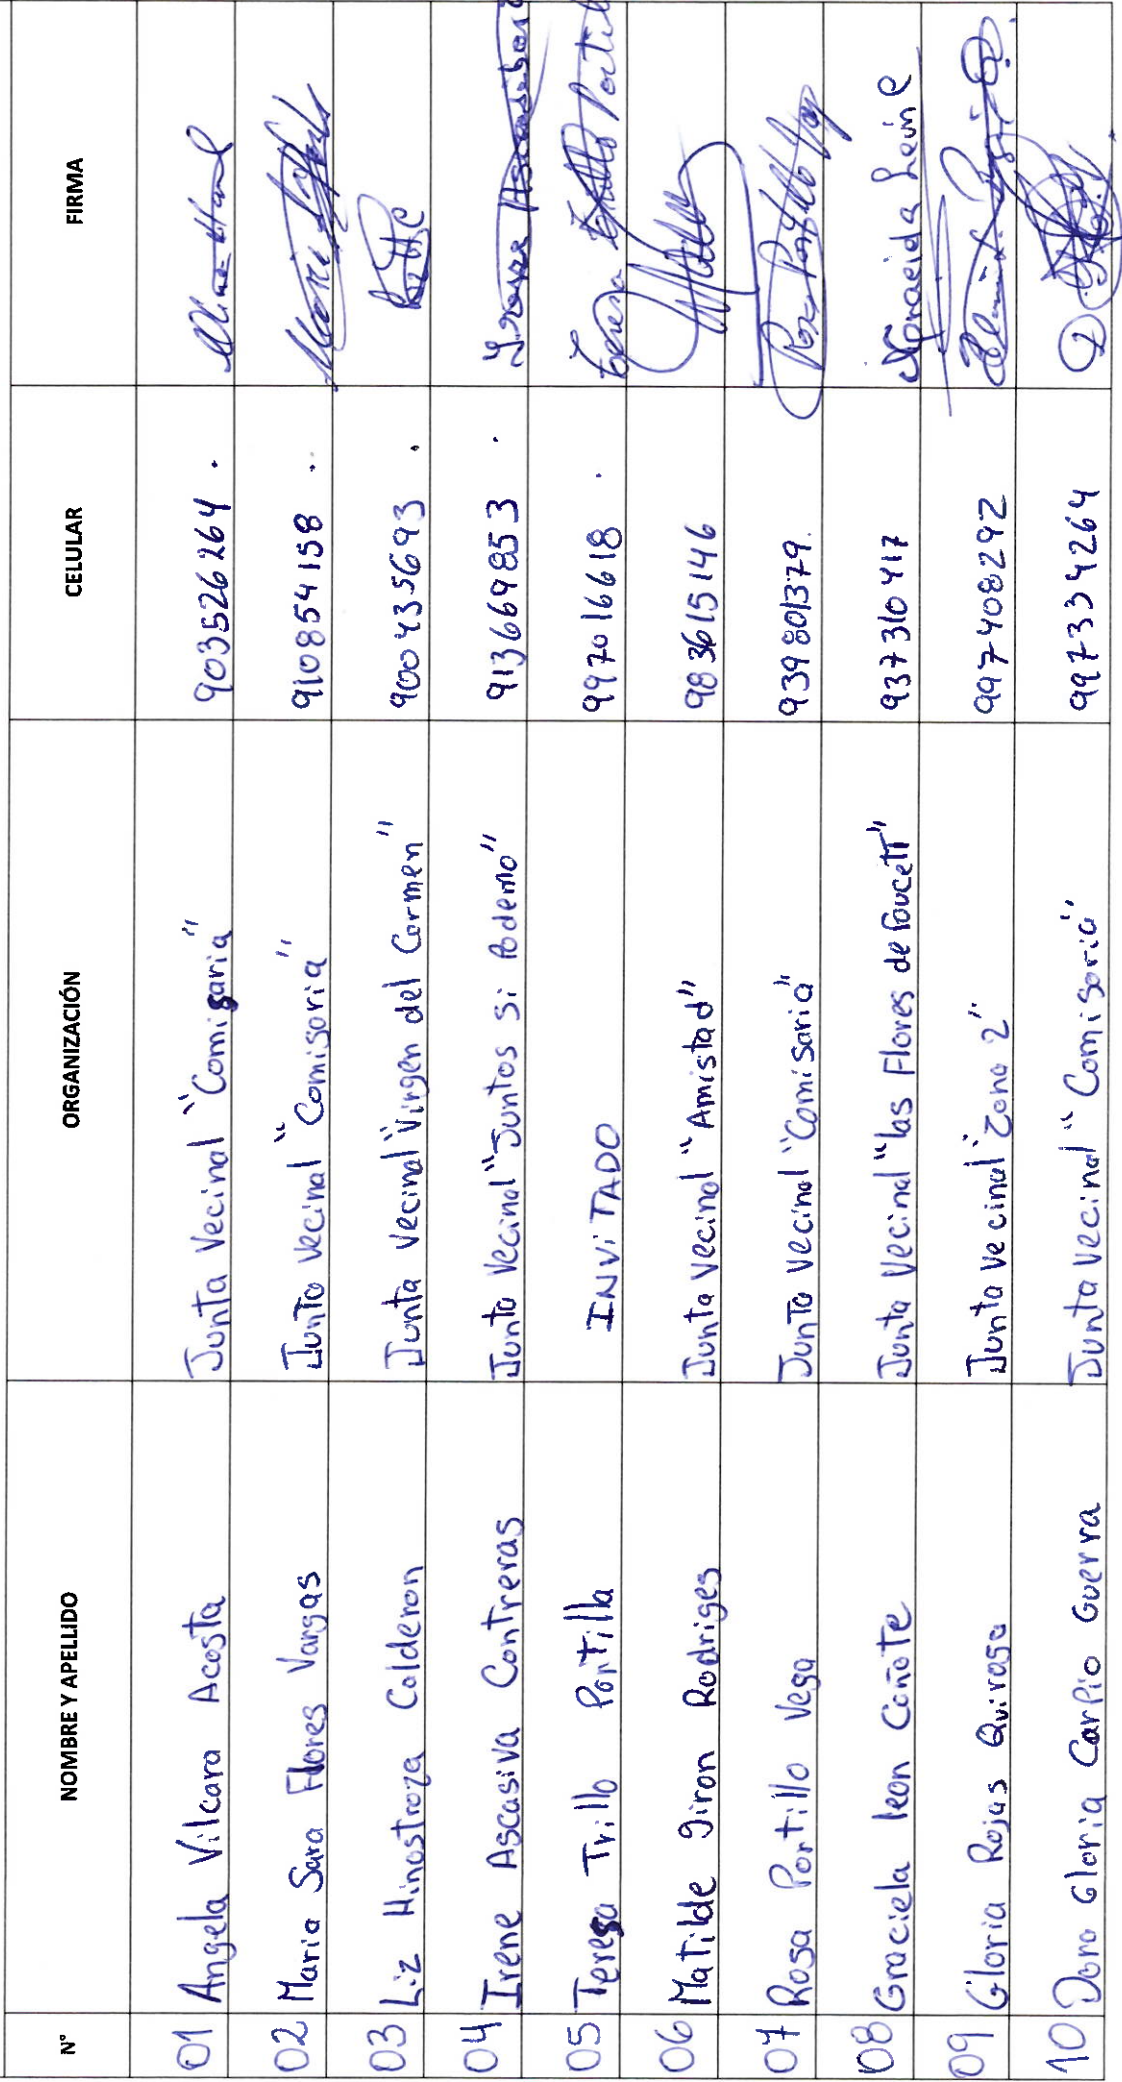 N° NOMBRE Y APELLIDO ORGANIZACIÓN CELULAR FIRMA
01 Angela Vilcara Acosta Junta Vecinal "Comisaria" 903526264 .
02 Maria Sara Flores Vargas Junta Vecinal "Comisaria" 910854158 ..
03 Liz Hinostroza Calderon Junta Vecinal "Virgen del Carmen" 900435693 .
04 Irene Ascasiva Contreras Junta Vecinal "Juntos si Podemo" 913669853 .
05 Teresa Trillo Portilla INViTADO 997016618 . Teresa Trillo
06 Matilde Giron Rodriges Junta Vecinal "Amistad" 983615146
07 Rosa Portillo Vega Junta Vecinal "Comisaria" 939801379. Rosa Portillo
08 Graciela leon Cañote Junta Vecinal "las Flores de Faucett" 937310417
09 Gloria Rojas Quiroga Junta Vecinal "Zona 2" 997408292
10 Dora Gloria Carpio Guerra Junta Vecinal "Comisaria" 997334264